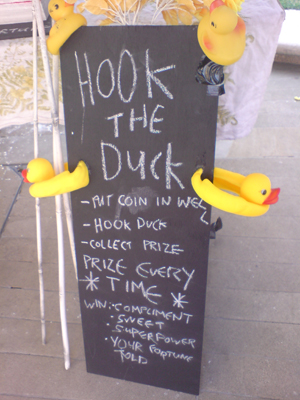 HOOK
THE
DUCK
- PUT COIN IN WELL
- HOOK DUCK
- COLLECT PRIZE
PRIZE EVERY
* TIME *
WIN: COMPLIMENT
• SWEET
• SUPERPOWER
• YOUR FORTUNE
TOLD